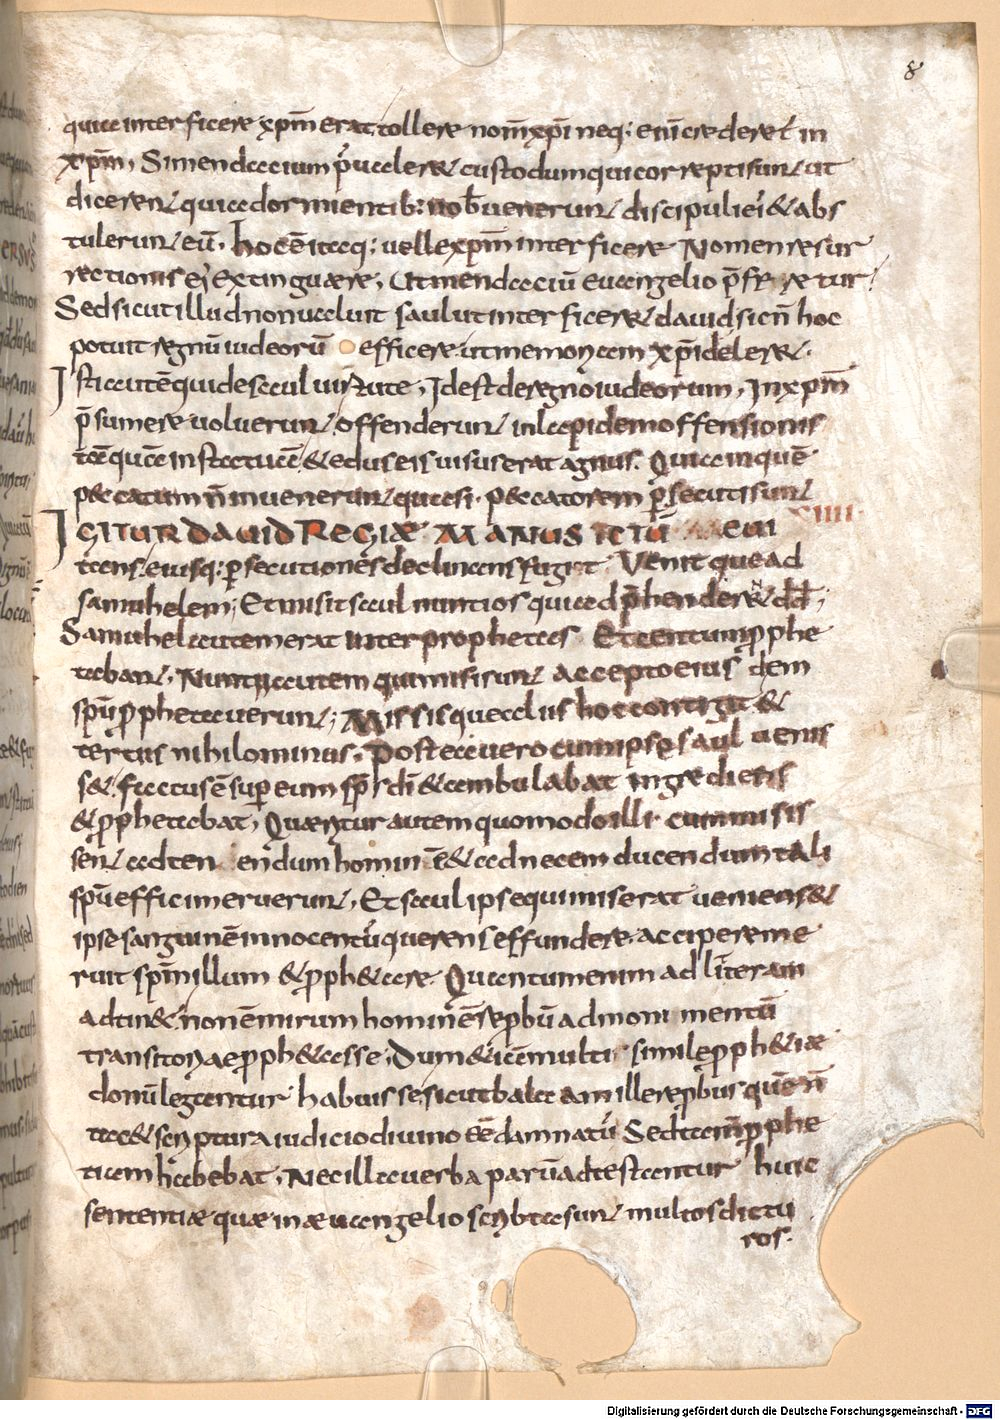 8
quia interficere xp̄m erat tollere nom̄ xp̄i neq; eni᷎ crederet᷎ in
xp̄m, Sim̄ endacium p̄ualere custodum qui correpti sun᷎ ut
diceren᷎ quia dormientib; nob̄ uenerun᷎ discipuli ei᷎ & abs
tulerun᷎ eū. hoc ē itaq; uelle xp̄m interficere Nomen resur
rectionis ei᷎ extinguære, Ut mendaciū euangelio p̄fer retur;
Sed sicut illud non ualuit saul ut interficere᷎ dauid sic n̄ hoc
potuit regnū iudeorū efficere ut memoriam xp̄i delere᷎.
Isti autē qui de saul uirtute, Id est de regno iudeorum, In xp̄m
p̄sumere uoluerun᷎ offenderun᷎ in lapidem offensionis
in statuē & edus eis uisus erat agnus. Quia in quē
peccatum n̄ inuenerun᷎ quasi peccatorem p̄secuti sun᷎
XIIII.
IGITUR DAUID REGIÆ MANUS ICTŪ EUI
tans. eiusq; persecutiones declinans fugit Venit que ad
samuhelem; Et misit saul nuntios qui ad p̄henderen᷎ dd̄;
Samuhel autem erat inter prophetas Et tantum pphe
taban᷎, Nuntii autem qui missi sun᷎ accepto eius dem
sp̄u pphetauerun᷎; Missisque aliis hoc contigit &
tertiis nihilominus, Postea uero cum ipse saul uenis
s&. factus ē super eum sp̄s dī & ambulabat ingrediens
& pphetabat, Quæritur autem quomodo illi cum missi s
sen᷎ ad ten endum homin ē & ad necem ducendum tali
sp̄u effici meruerun᷎, Et saul ipse qui miserat ueniens &
ipse sanguinē innocentū querens effundere accipere me
ruit sp̄m illum & pph&are. Quantum enim ad literam
adtin&. non ē mirum hominē reprobū ad momentū
transitoriae pph&asse, Dum & iā multi simile pph&iæ
donū legantur habuisse sicut balaam ille reprobus quē n̄
tac& scriptura iudicio diuino eē damnatū Sed tam̄ pphe
tiam habebat, Nec illa uerba parū adtestantur huic
sententiæ quæ in æuangelio scribta sun᷎ multos dictu
ros.
Digitalisierung gefördert durch die Deutsche Forschungsgemeinschaft - DFG